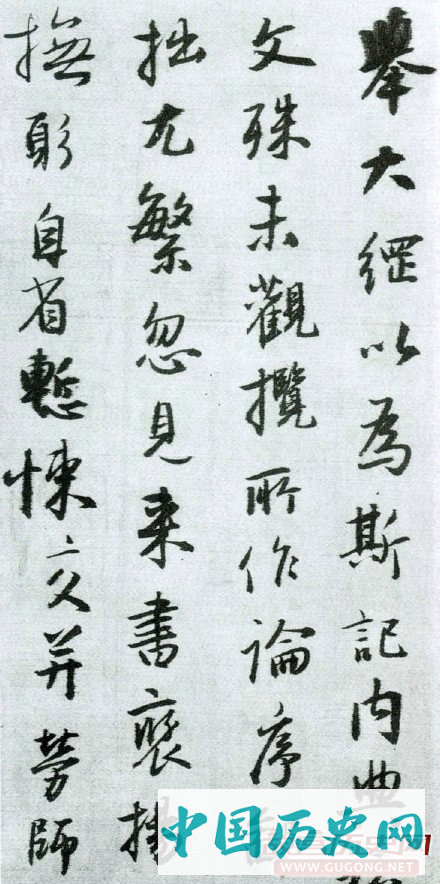 舉大綱以為斯記内典
文殊未觀攬所作論序
拙尤繁忽見来書襃揚
撫躬自省慙悚交并勞師
中国历史网
WWW.GUGONG.NET